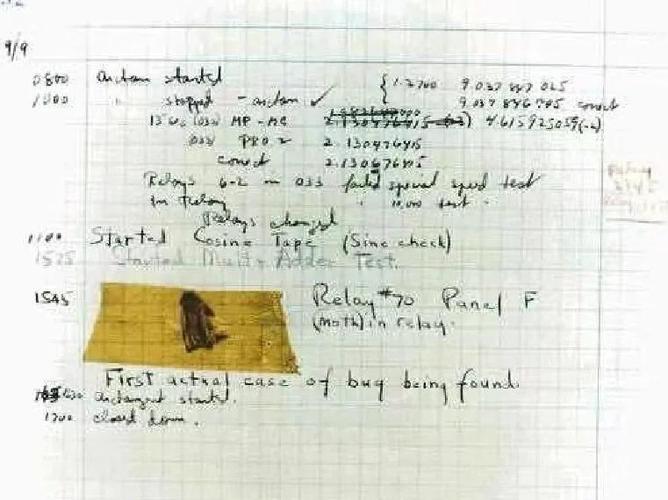 9/9
0800 antan started { 1.2700 9.037 847 025
1000 " stopped - antan ✓ 9.037 846 795 correct
13"uc (032) MP - MC 2.130476415 4.615925059(-2)
033 PRO 2 2.130476415
correct 2.130676415
Relays 6-2 in 033 failed special speed test
in relay " 10.000 test.
Relays changed
1100 Started Cosine Tape (Sine check)
1525 Started Mult + Adder Test.
1545 Relay #70 Panel F
(moth) in relay.
First actual case of bug being found.
1630 antangent started.
1700 closed down.